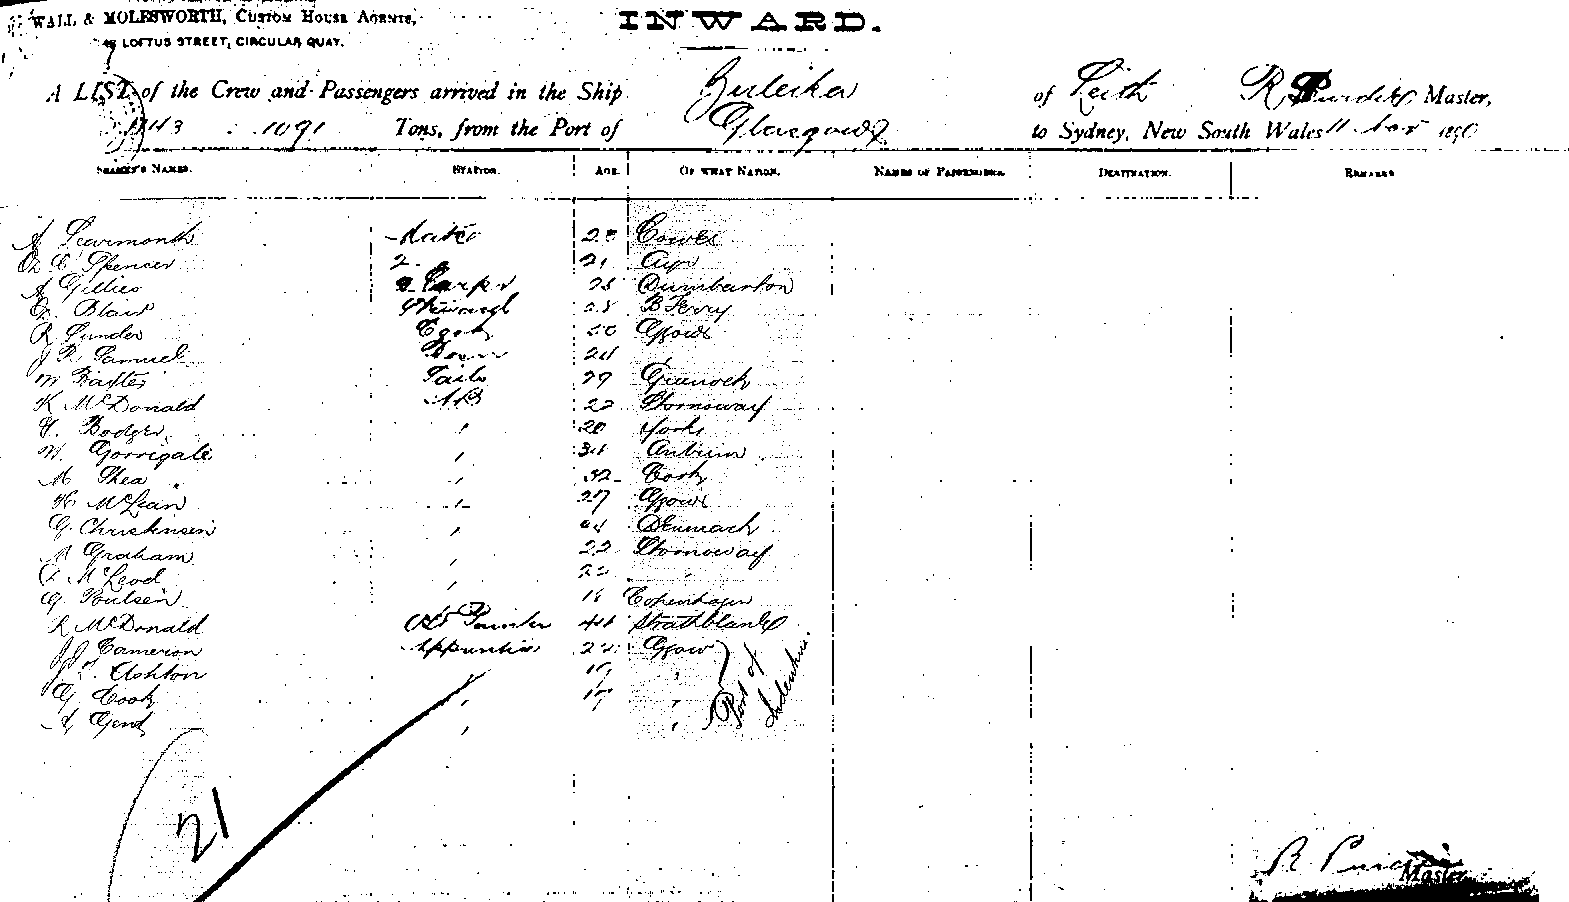 WALL & MOLESWORTH, CUSTOM HOUSE AGENTS,
LOFTUS STREET, CIRCULAR QUAY.
INWARD.
A LIST of the Crew and Passengers arrived in the Ship Zuleika of Leith R Purdie Master,
1091 Tons, from the Port of Glasgow to Sydney, New South Wales 11 Nov 1890
NAMES. STATION. AGE. OF WHAT NATION. NAMES OF PASSENGERS. DESTINATION. REMARKS
A Learmonth Mate Cowes
C Spencer 2 21 Ayr
A Gillies Carpr Dumbarton
Blair B Ferry
R Cook Ggow
J Samuel 24
M Baxter Sails 29 Greenock
K McDonald AB 22 Stornoway
Bodger " 20 York
M. Gorrigale " 34 Antrim
M Shea " 32 Cork
H McLean " 27 Ggow
G Christensen " Denmark
A Graham " 22 Stornoway
McLeod " 22 "
G. Poulsen " 18 Copenhagen
R McDonald 44 Strathblane
J J Cameron Apprentice 22 Ggow
J. Ashton " 17 "
G Cook " 17 "
A Gent " "
Port of Indenture.
21
R Purdie
Master